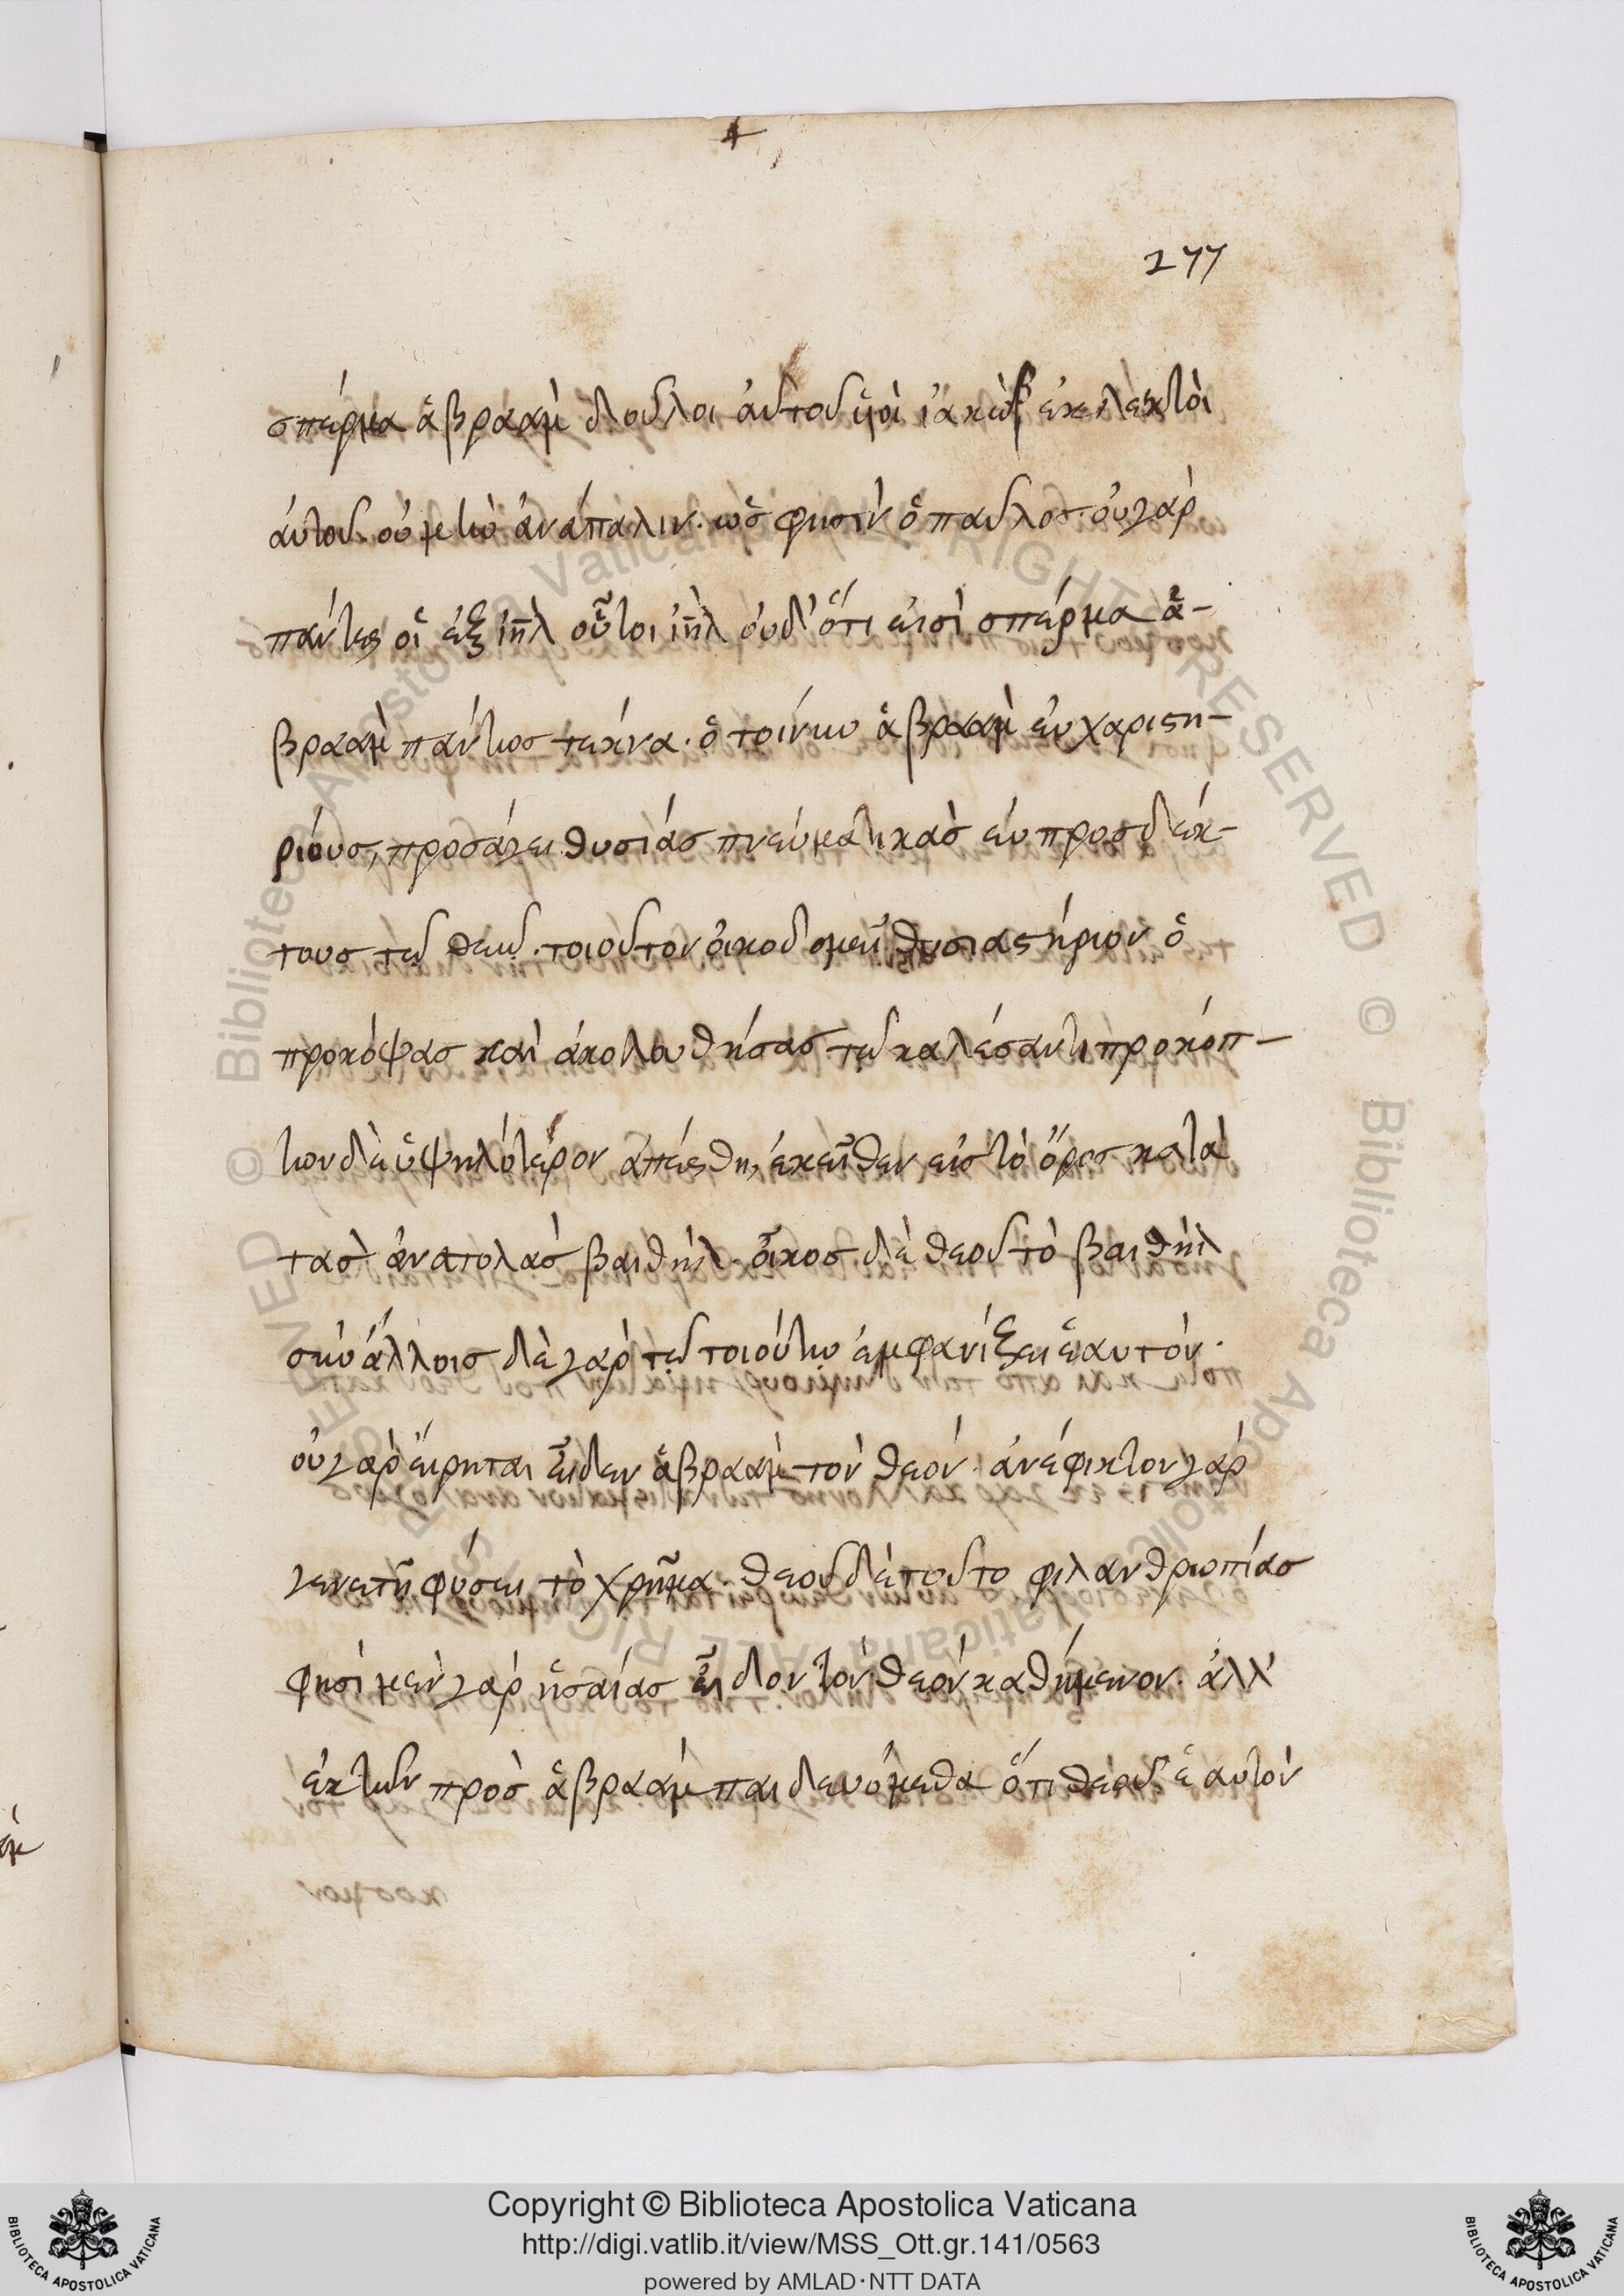 277
σπέρμα ἁβραὰμ δοῦλοι ἀυτοῦ ὑιὸι ἰακὼβ ἐκλεκτὸι
ἀυτοῦ. οὐ μὴν ἀνάπαλιν. ὥς φησὶν ὁ παῦλος. ὀυ γὰρ
πάντες οἱ ἐξ ιη̄λ οὗτοι ιη̄λ ὀυδ' ὅτι ἐισὶ σπέρμα ἁ-
βραὰμ πάντως τέκνα. ὁ τοίνυν ἁβραὰμ ἐυχαριστη-
ρίους, προσάγει θυσίας πνευματικὰς ἐυπροσδέκ-
τους τῷ θεῷ. τοιοῦτον ὀικοδομεῖ θυσιαστήριον ὁ
προκόψας καὶ ἀκολουθήσας τῷ καλέσαντι προκόπ-
των δὲ ὑψηλότερον ἀπέστη, ἐκεῖθεν ἐις τὸ ὄρος κατὰ
τὰς ἀνατολὰς βαιθήλ. ὁῖκος δὲ θεοῦ τὸ βαιθὴλ
σὺν ἄλλοις δὲ γὰρ τῷ τοιούτῳ ἐμφανίζει ἑαυτόν.
ὀυ γὰρ ἔιρηται εἶδεν ἁβραὰμ τὸν θεόν. ἀνέφικτον γὰρ
γενετῇ φύσει τὸ χρῆμα. θεοῦ δὲ τοῦτο φιλανθρωπίας
φησὶ μὲν γὰρ ἡσαίας εἶδον τὸν θεὸν καθήμενον. ἀλλ'
ἐκ τῶν πρὸς ἁβραὰμ παιδευόμεθα ὅτι θεοῦ ἑαυτὸν
Copyright © Biblioteca Apostolica Vaticana
http://digi.vatlib.it/view/MSS_Ott.gr.141/0563
powered by AMLAD·NTT DATA